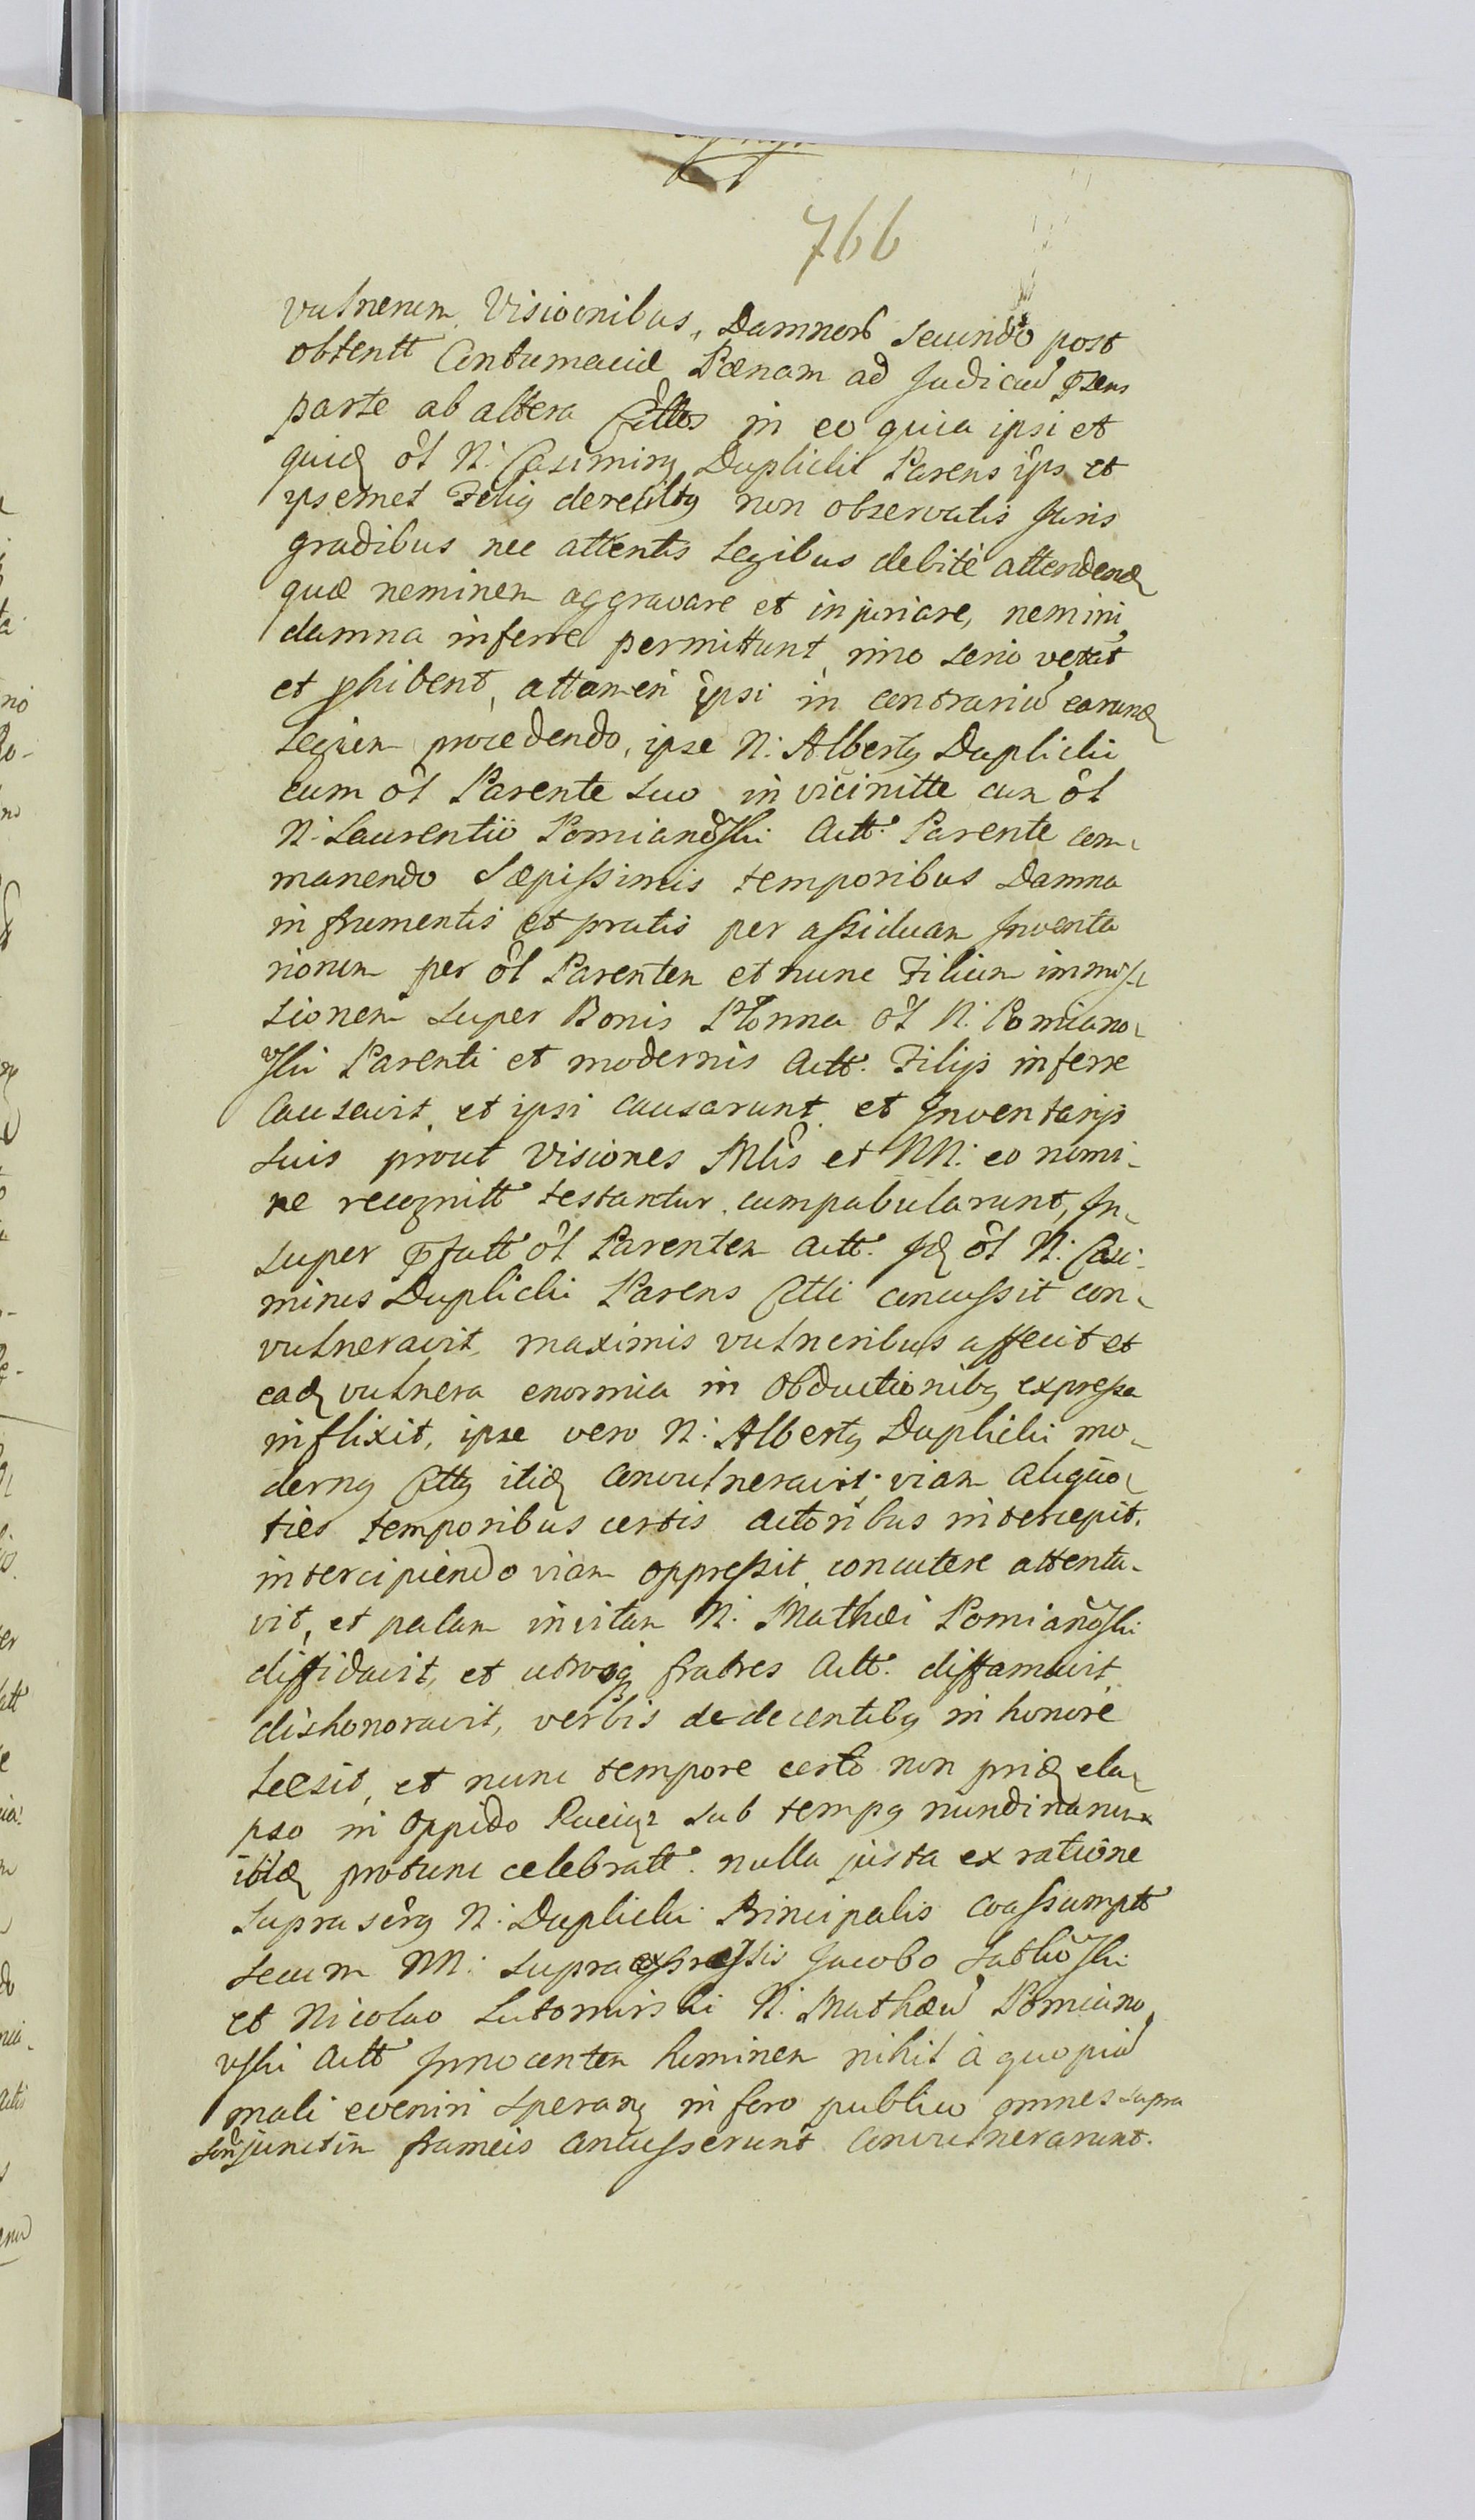 766
vulnerum Visionibus, Damnorb secundo post
obtentt Contumaciæ Pænam ad Judiciu᷑ pszens
parte ab altera Cittos in eo quia ipsi et
quidȩ ol N: Casimirȝ Duplicki Parens ips et
ipsemet Filiȝ derelictȝ non observatis Juris
gradibus nec attentis Legibus debitè attendend
quæ neminem aggravare et injuriare, nemini
damna inferre permittunt, imo serio vetat
et phibent, attamen ipsi in contrariu᷑ earund
Legum procedendo, ipse N: Albertȝ Duplicki
cum ol Parente suo in vicinitte cum ol
N: Laurentio Pomianoski Actt: Parente com-
manendo sæpissimis temporibus Damna
in frumentis et pratis per assiduam Inventa
riorum per ol Parentem et nunc Filium immis-
sionem super Bonis Płonna ol N: Pomiano-
wski Parenti et modernis Actt: Filijs inferre
causavit, et ipsi causarunt, et Inventarijs
suis prout Visiones Mlis et NN: eo nomi-
ne recognitt testantur cumpabularunt, In-
super pfatt ol Parentem Actt: Id ol N: Casi-
mirus Duplicki Parens Citti concussit con-
vulneravit, maximis vulneribus affecit et
ead vulnera enormia in Obductionibȝ expressa
inflixit, ipse vero N: Albertȝ Duplicki mo-
dernȝ Cittȝ itid convulneravit, viam aliquo-
ties temporibus certis actoribus intercepit,
intercipiendo viam oppressit, concutere attenta-
vit, et palam in vitam N: Mathæi Pomianoski
diffidavit, et utrosqȝ fratres Actt: diffamavit
dishonoravit, verbis dedecentibȝ in honore
læsit, et nunc tempore certo non prid ela-
pso in Oppido Raciąz sub tempȝ nundinarum
ibid protunc celebratt: nulla justa ex ratione
supra serȝ N: Duplicki Principalis coassumptt
secum NN: supra expressis Jacobo
et Nicolao Lutomirski N: Mathæu᷑ Pomiano-
wski Actt Innocentem hominem nihil à quopiu᷑
mali eveniri speranȝ in foro publico omnes supra
conjunctim frameis concusserunt convulnerarunt.